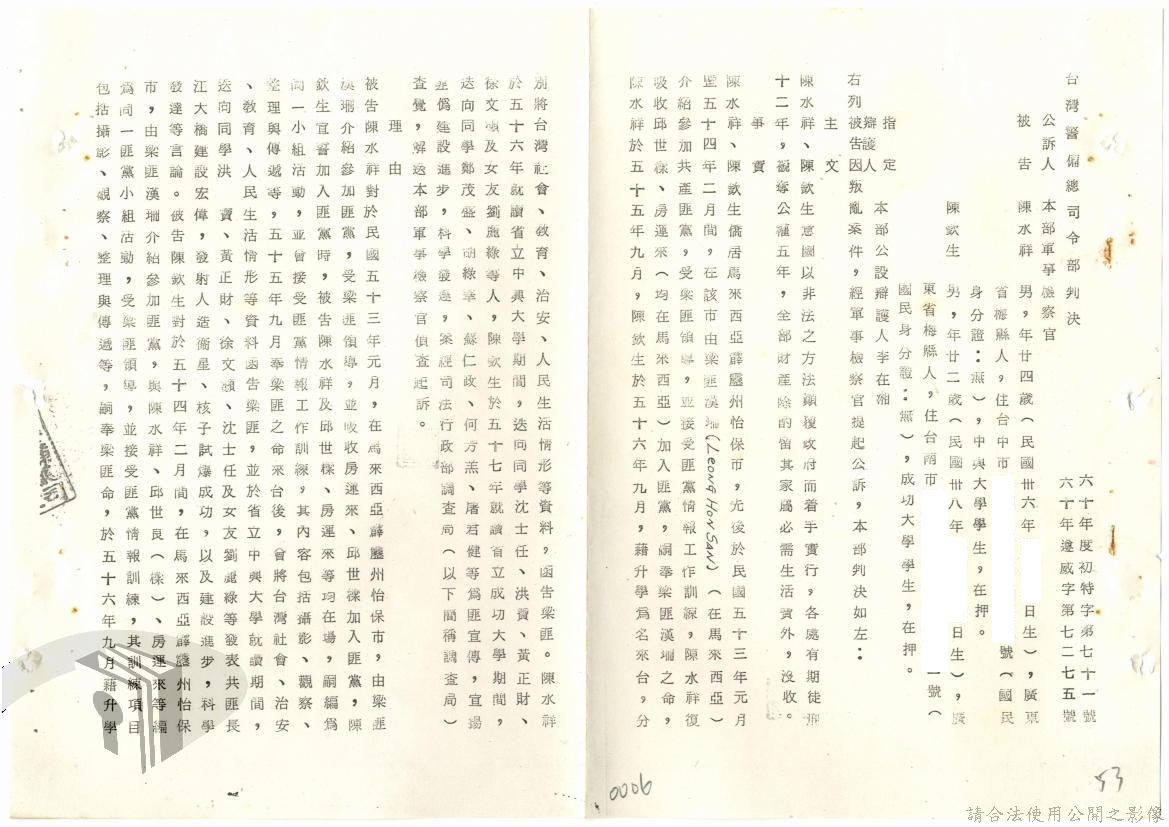 台灣警備總司令部判決
六十年度初特字第七十一號
六十年遼威字第七二七五號
公訴人 本部軍事檢察官
被告 陳水祥 男，年廿四歲（民國卅六年 日生），廣東
省梅縣人，住台中市 號（國民
身分證：無），中興大學學生，在押。
陳欽生 男，年廿二歲（民國卅八年 日生），廣
東省梅縣人，住台南市 一號（
國民身分證：無），成功大學學生，在押。
指定
辯護人 本部公設辯護人李在湘
右列被告因叛亂案件，經軍事檢察官提起公訴，本部判決如左：
主文
陳水祥、陳欽生意圖以非法之方法顛覆政府而着手實行，各處有期徒刑
十二年，褫奪公權五年，全部財產除酌留其家屬必需生活費外，沒收。
事實
陳水祥、陳欽生僑居馬來西亞霹靂州怡保市，先後於民國五十三年元月
暨五十四年二月間，在該市由梁匪漢珊(LEONG HON SAN)（在馬來西亞）
介紹參加共產匪黨，受梁匪領導，並接受匪黨情報工作訓練，陳水祥復
吸收邱世樑、房運來（均在馬來西亞）加入匪黨，嗣奉梁匪漢珊之命，
陳水祥於五十五年九月，陳欽生於五十六年九月，藉升學為名來台，分
別將台灣社會、教育、治安、人民生活情形等資料，函告梁匪。陳水祥
於五十六年就讀省立中興大學期間，迭向同學沈士任、洪賓、黃正財、
徐文巓及女友劉麗綠等人，陳欽生於五十七年就讀省立成功大學期間，
迭向同學鄭茂盛、胡錦華、蘇仁政、何方熹、屠君健等為匪宣傳，宣揚
匪偽建設進步，科學發達，案經司法行政部調查局（以下簡稱調查局）
查覺，解送本部軍事檢察官偵查起訴。
理由
被告陳水祥對於民國五十三年元月，在馬來西亞霹靂州怡保市，由梁匪
漢珊介紹參加匪黨，受梁匪領導，並吸收房運來、邱世樑加入匪黨，陳
欽生宣誓加入匪黨時，被告陳水祥及邱世樑、房運來等均在場，嗣編為
同一小組活動，並曾接受匪黨情報工作訓練，其內容包括攝影、觀察、
整理與傳遞等，五十五年九月奉梁匪之命來台後，曾將台灣社會、治安
、教育、人民生活情形等資料函告梁匪，並於省立中興大學就讀期間，
迭向同學洪賓、黃正財、徐文巓、沈士任及女友劉麗綠等發表共匪長
江大橋建設宏偉，發射人造衛星、核子試爆成功，以及建設進步，科學
發達等言論。被告陳欽生對於五十四年二月間，在馬來西亞霹靂州怡保
市，由梁匪漢珊介紹參加匪黨，與陳水祥、邱世良（樑）、房運來等編
為同一匪黨小組活動，受梁匪領導，並接受匪黨情報訓練，其訓練項目
包括攝影、觀察、整理與傳遞等，嗣奉梁匪命，於五十六年九月藉升學
0006
53
請合法使用公開之影像